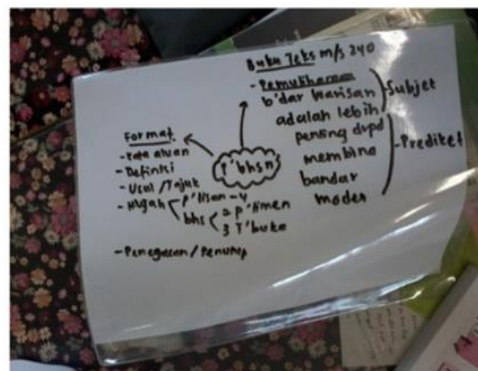 Buku Teks m/s 240
- Pemuliharaan
b'dar warisan
adalah lebih
penting drpd
membina
bandar
moden
Subjet
- Prediket
P'bhsn
Format
- Kata aluan
- Definisi
- Usul / Tajuk
- Hujah
P'lisan - 4
bhs
2 P'limen
3 T'buka
- Penegasan / Penutup